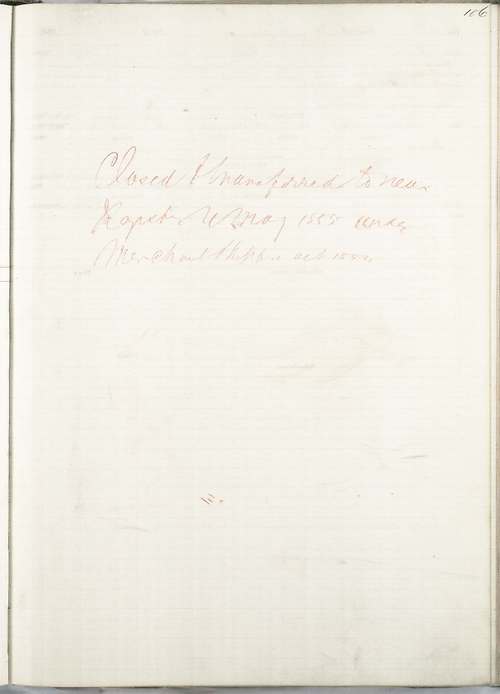 106
Closed & transferred to new
Regist May 1855 under
Merchant Shipping Act 1854